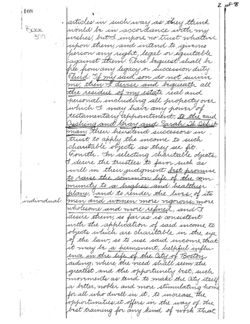 2 of 8
articles in such way as they think
would be in accordance with my
wishes, but I impose no trust whatever
upon them, and intend to give no
person any right, legal or equitable
against them. This bequest shall be
free from any legacy or succession duty.
Third. If my said son do not survive
me, then I devise and bequeath all
the residue of my estate real and
personal, including all property over
which I may have any power of
testamentary appointment, to the said
and
their heirs and successors in
trust to apply the income to such
charitable objects as they see fit
In selecting charitable objects
I desire the trustees to favor such as
will in their judgment best promise
to raise the common life of the com-
munity to a higher and healthier
plane, and to render the lives of its
individual men and women more vigorous, more
wholesome and more refined, and I
desire them, so far as is consistent
with the application of said income to
objects which are charitable in the eye
of the law, so to use said income, that
it may be a permanent, helpful influ-
ence in the life of the City of Boston,
aiding, where the need shall seem the
greatest and the opportunity best, such
movements as tend to make the city itself
a better, nobler and more stimulating home
for all who dwell in it, to increase the
opportunities it offers in the way of the
best training for any kind of work that